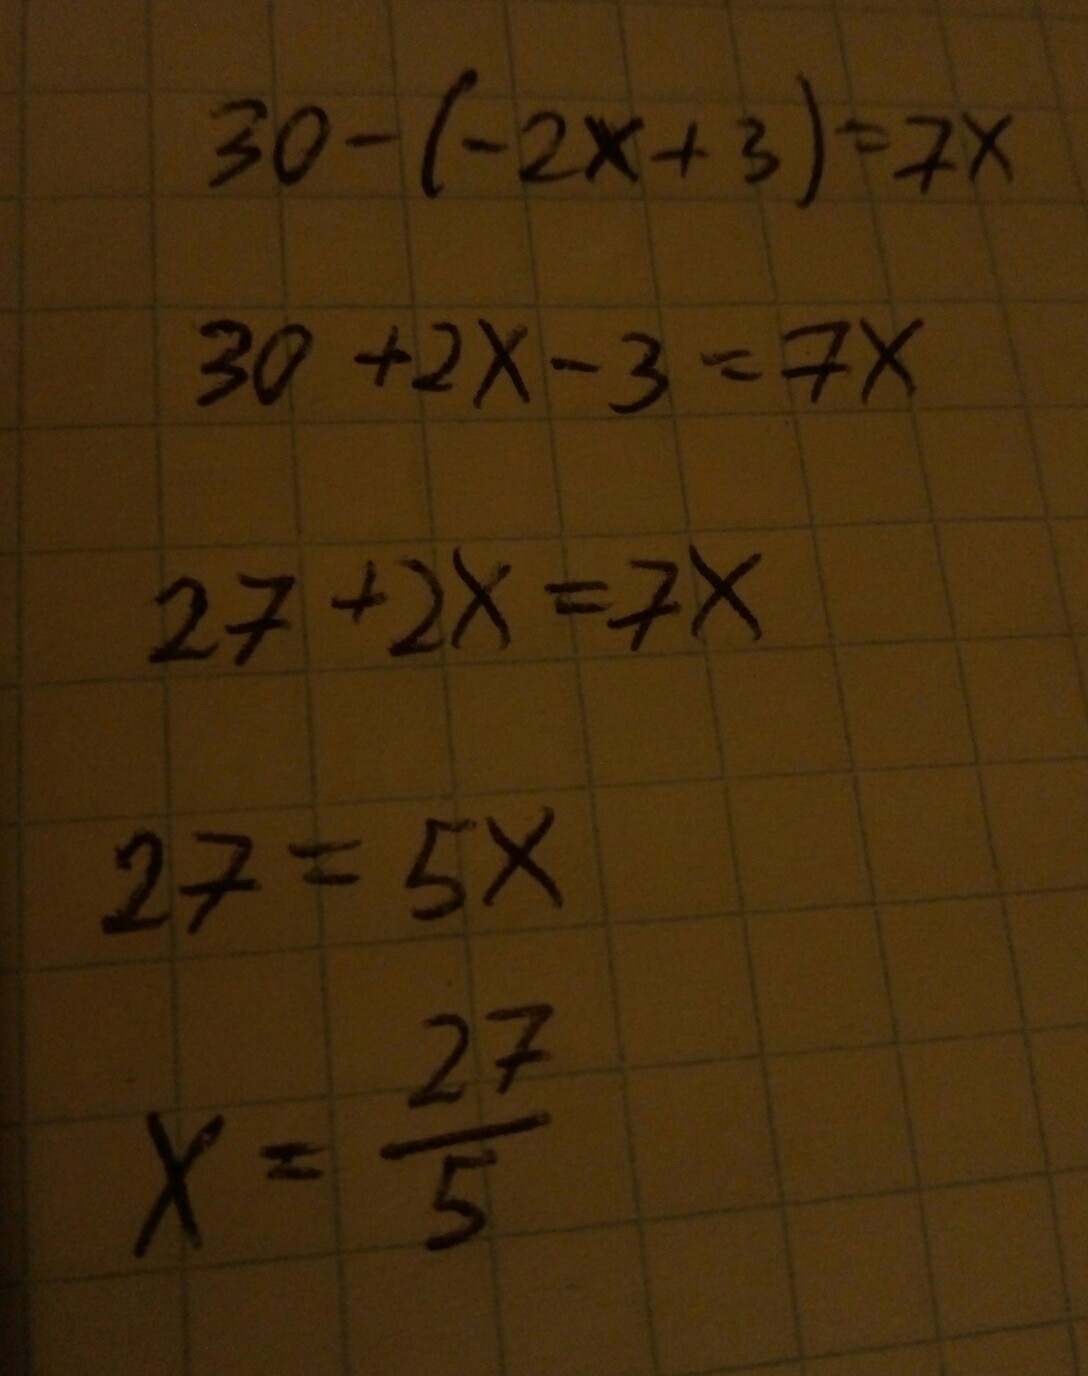 30-(-2x+3)=7x
30+2x-3=7x
27+2x=7x
27=5x
x=27/5